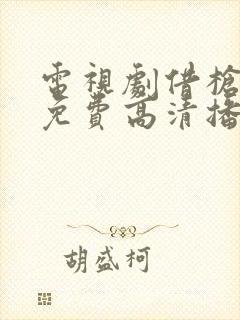 電視劇借槍
免費高清播
胡盛柯